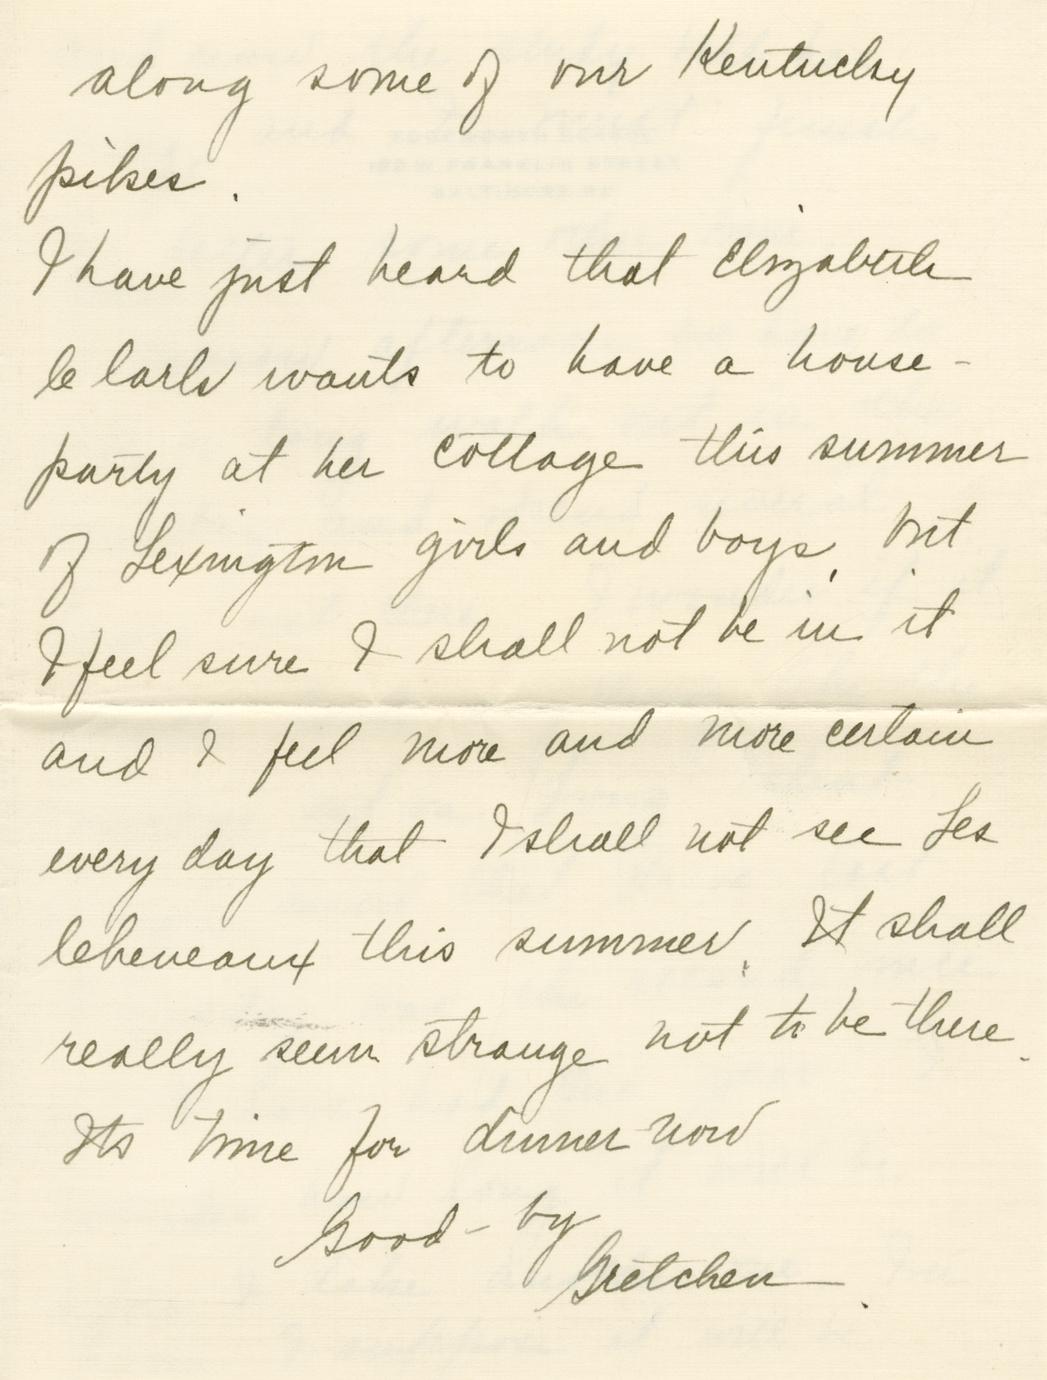 along some of our Kentucky
pikes.
I have just heard that Elizabeth
Clark wants to have a house-
party at her cottage this summer
of Lexington girls and boys, but
I feel sure I shall not be in it
and I feel more and more certain
every day that I shall not see Les
Cheneaux this summer. It shall
really seem strange not to be there.
Its time for dinner now
Good-by
Gretchen.